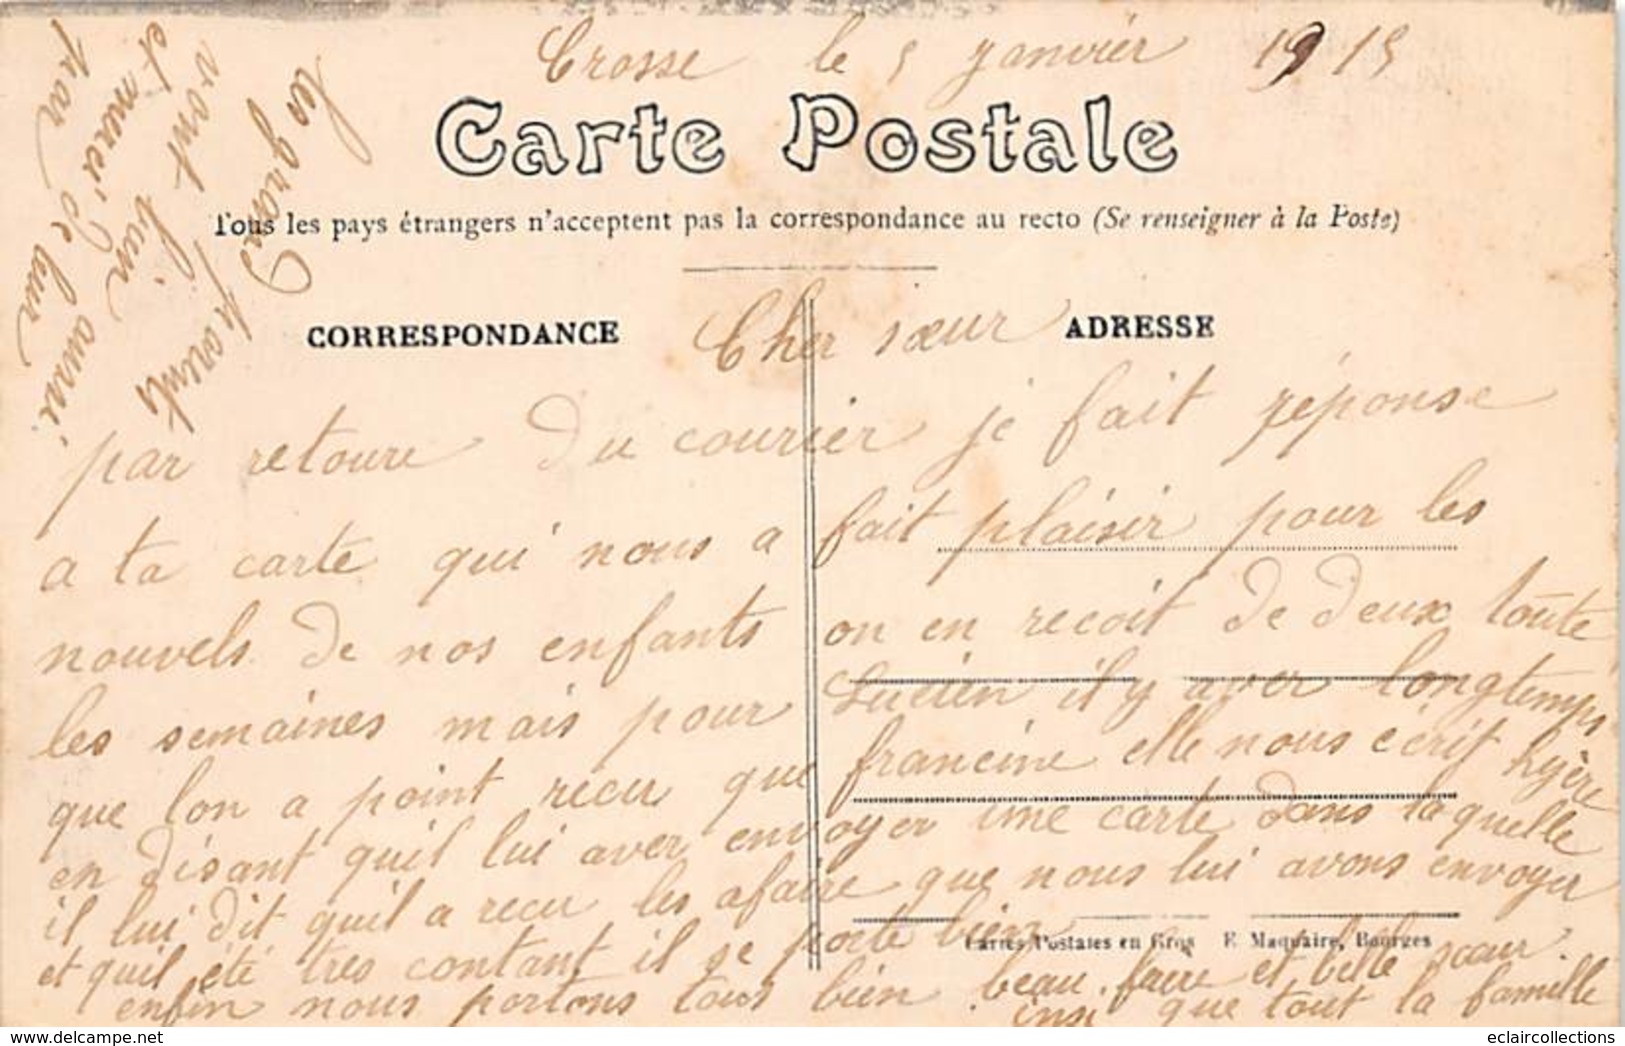 Crosse le 5 janvier 1915
Carte Postale
Tous les pays étrangers n'acceptent pas la correspondance au recto (Se renseigner à la Poste)
CORRESPONDANCE
ADRESSE
Cher sœur
par retoure du courier je fait réponse
a ta carte qui nous a fait plaisir pour les
nouvels de nos enfants on en recoit de deux toute
les semaines mais pour Lucien il y aver longtemps
que lon a point recu que francine elle nous écrit hyère
en disant quil lui aver envoyer une carte dans laquelle
il lui dit quil a recu les afaire que nous lui avons envoyer
et quil été tres contant il se porte bien
enfin nous portons tous bien beau faire et belle sœur.
insi que tout la famille
les grand
parents
vont bien
et merci de leur
par
aussi
Cartes Postales en Gros E. Maquaire, Bourges
eclaircollections